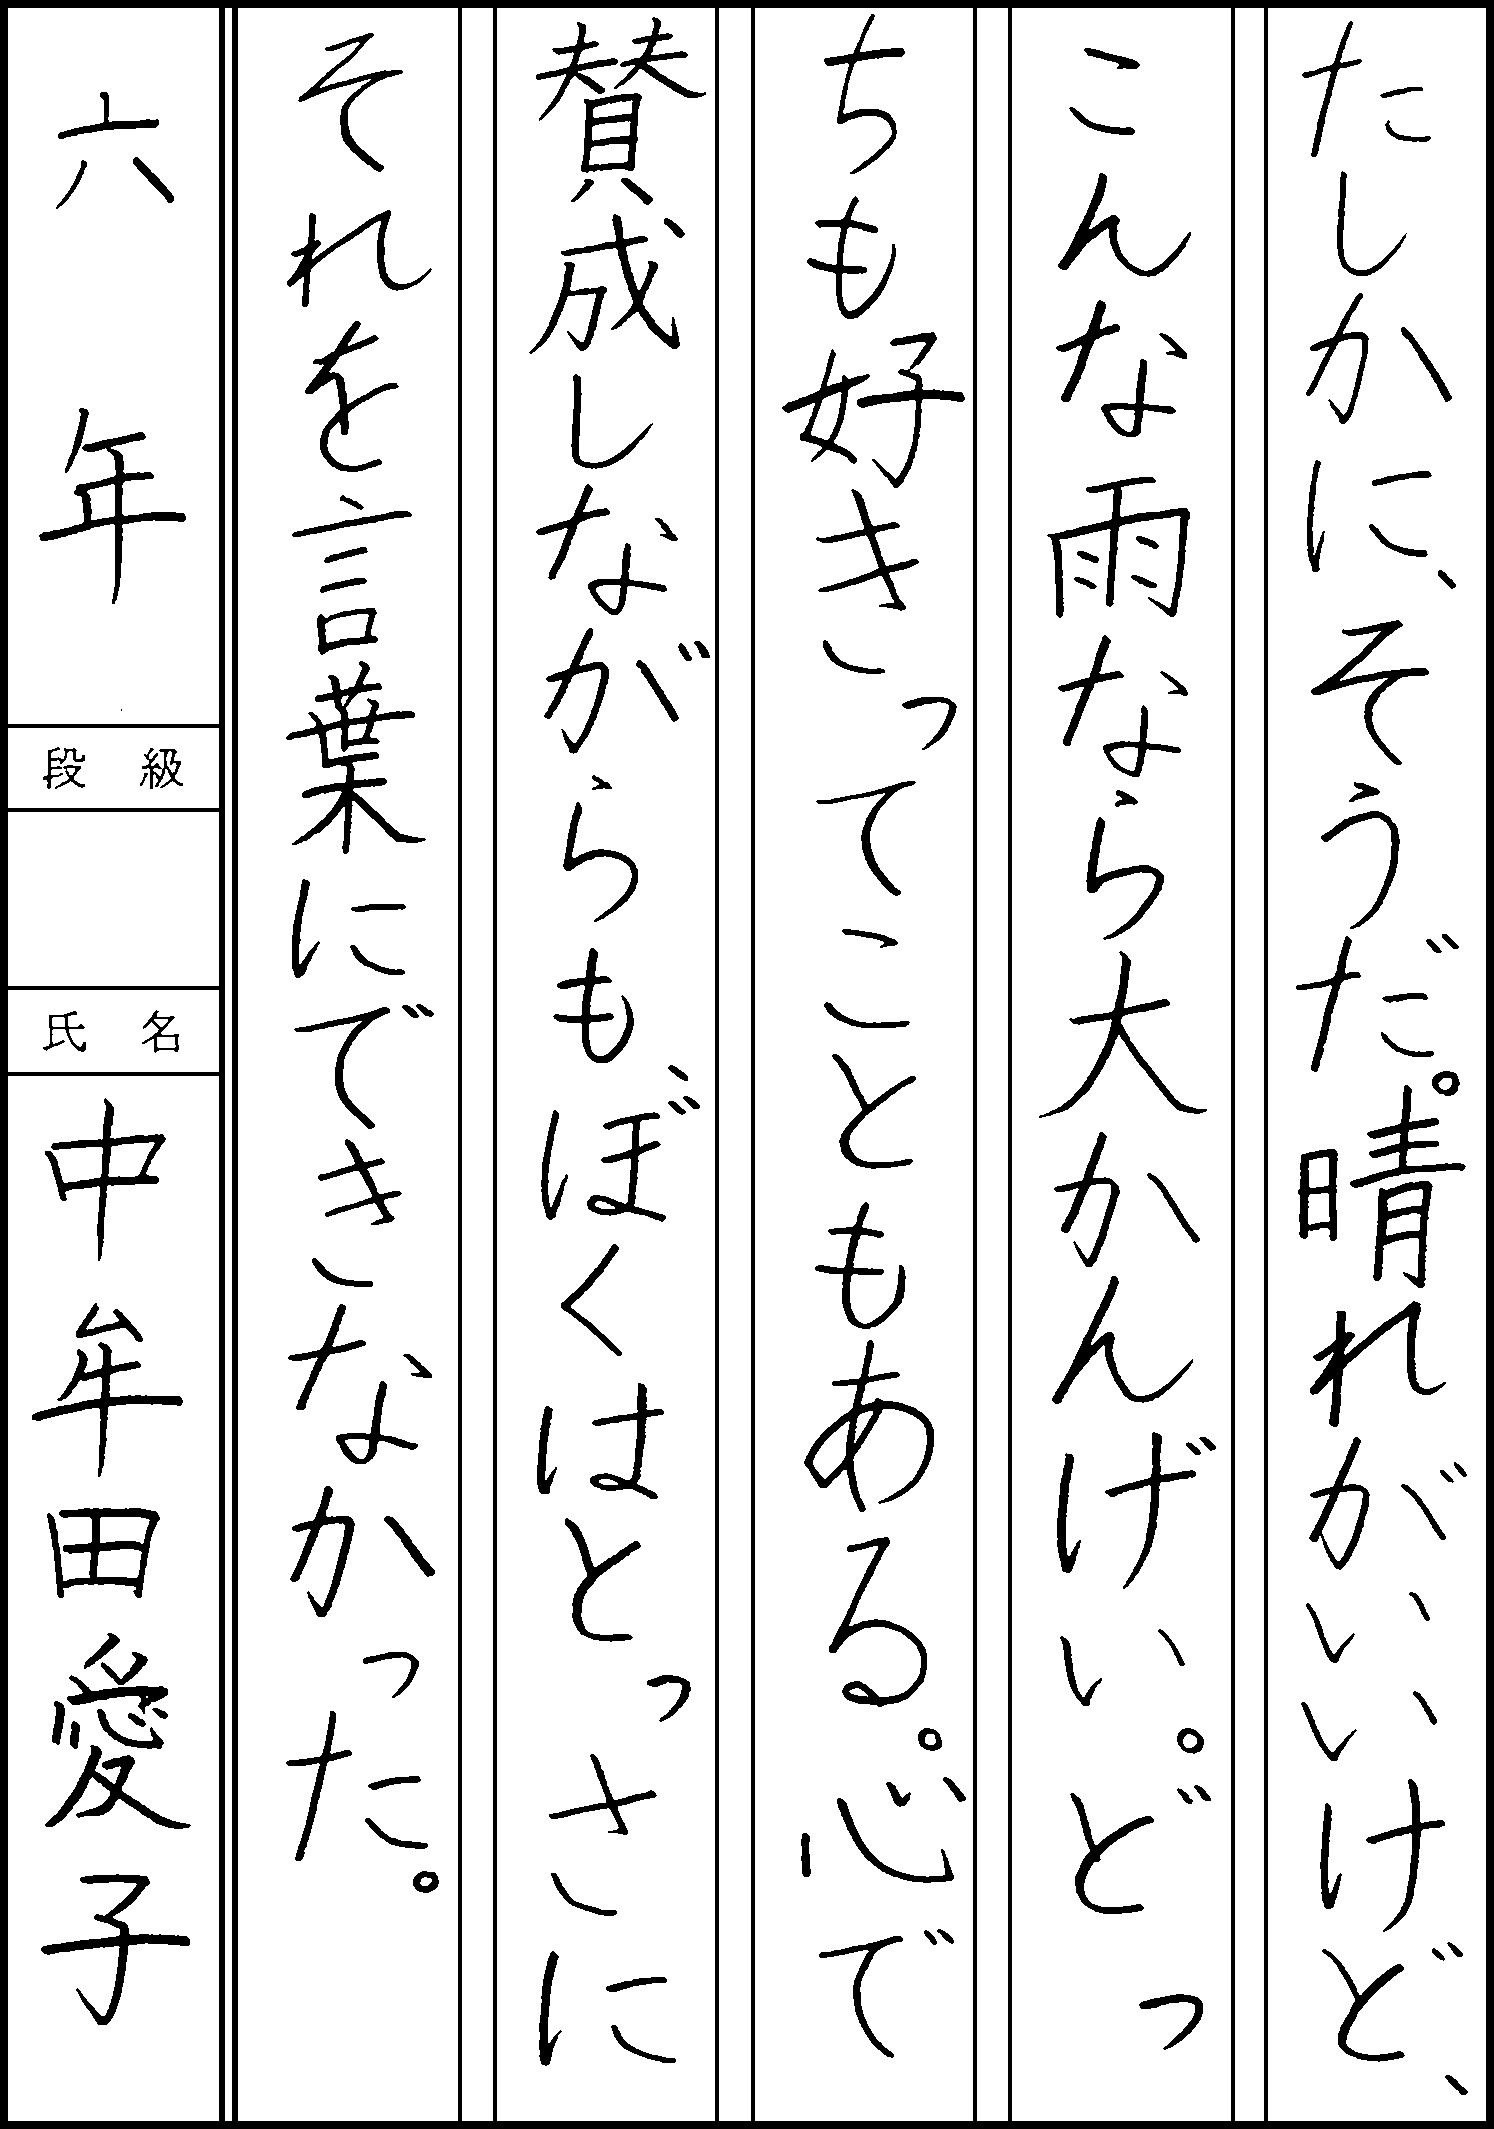 たしかに、そうだ。晴れがいいけど、
こんな雨なら大かんげい。どっ
ちも好きってこともある。心で
賛成しながらも、ぼくはとっさに
それを言葉にできなかった。
六年
段級
氏名
中牟田愛子